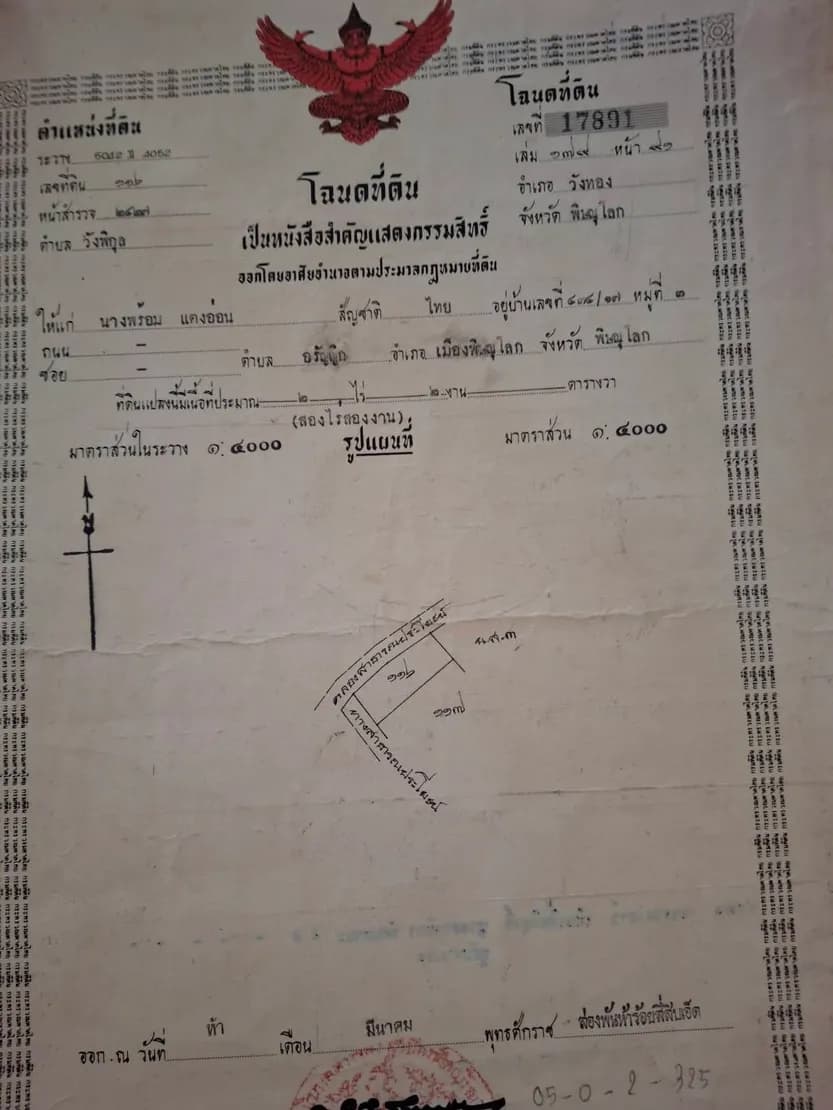 โฉนดที่ดิน
ตำแหน่งที่ดิน
เลขที่ 17891
ระวาง ๕๐๔๒ II ๔๐๕๒
เล่ม ๑๗๙ หน้า ๙๑
เลขที่ดิน ๑๑๖
อำเภอ วังทอง
หน้าสำรวจ ๒๔๒๗
จังหวัด พิษณุโลก
ตำบล วังพิกุล
โฉนดที่ดิน
เป็นหนังสือสำคัญแสดงกรรมสิทธิ์
ออกโดยอาศัยอำนาจตามประมวลกฎหมายที่ดิน
ให้แก่ นางพร้อม แตงอ่อน สัญชาติ ไทย อยู่บ้านเลขที่ หมู่ที่ ๓
ถนน –
ซอย – ตำบล อรัญญิก อำเภอ เมืองพิษณุโลก จังหวัด พิษณุโลก
ที่ดินแปลงนี้มีเนื้อที่ประมาณ ๒ ไร่ ๒ งาน ตารางวา
(สองไร่สองงาน)
มาตราส่วนในระวาง ๑:๔๐๐๐ รูปแผนที่ มาตราส่วน ๑:๔๐๐๐
น
คลองสาธารณประโยชน์
น.ส.๓
๑๑๖
๑๑๗
ทางสาธารณประโยชน์
ออก ณ วันที่ ห้า เดือน มีนาคม พุทธศักราช สองพันห้าร้อยสี่สิบเอ็ด
05-0-2-325